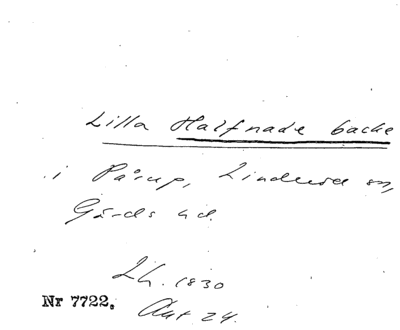 Lilla Halfnade backe
i Pårup, Linderöd sn,
Gärds hd.
Lh. 1830
Nr 7722. Akt 24.